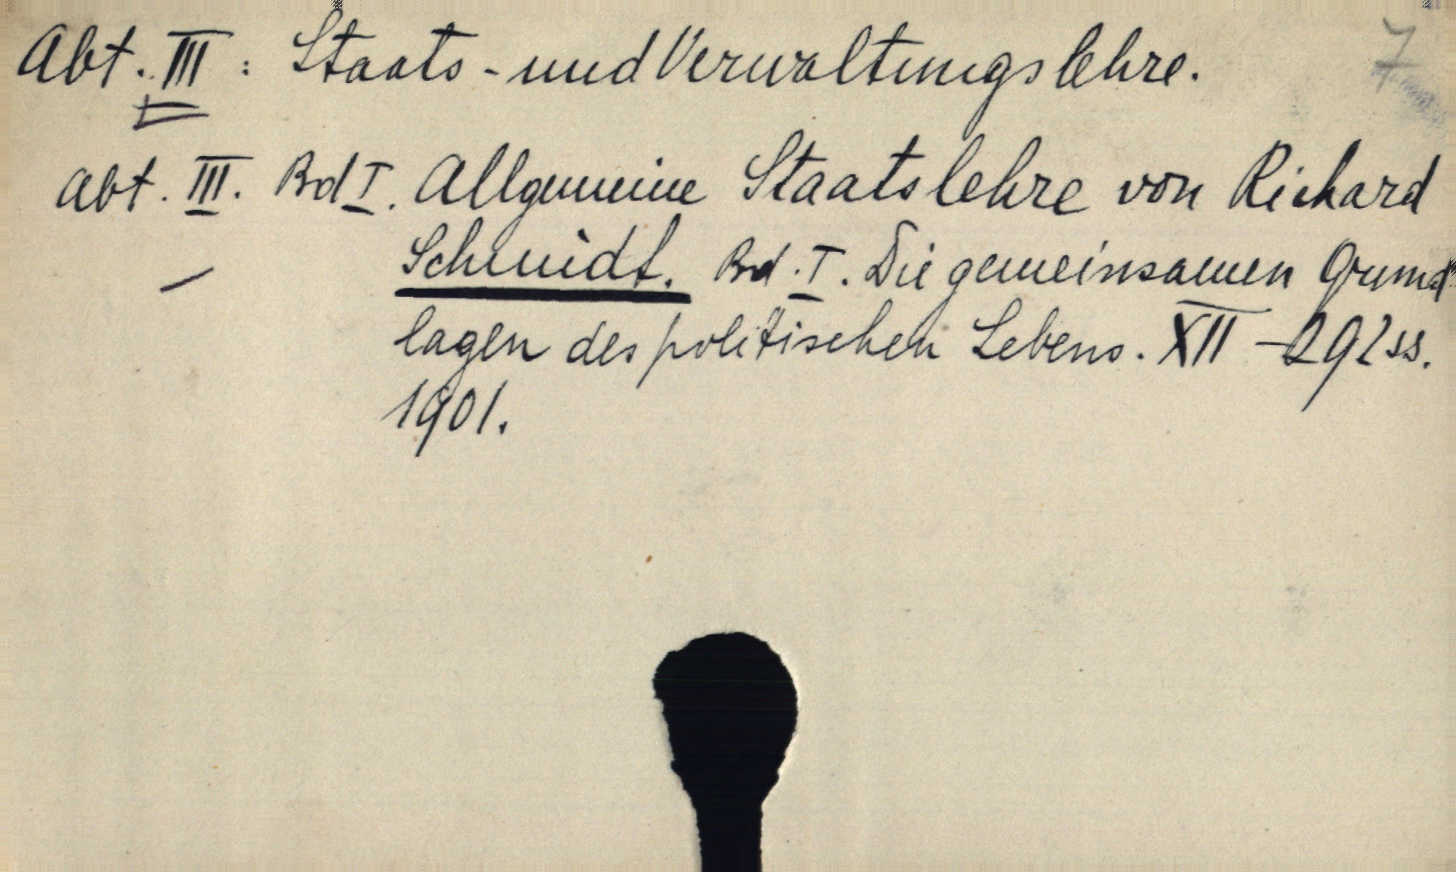 7
Abt. III : Staats- und Verwaltungslehre.
Abt. III. Bd I. Allgemeine Staatslehre von Richard
Schmidt. Bd. I. Die gemeinsamen Grund
lagen des politischen Lebens. XII - 292 ss.
1901.